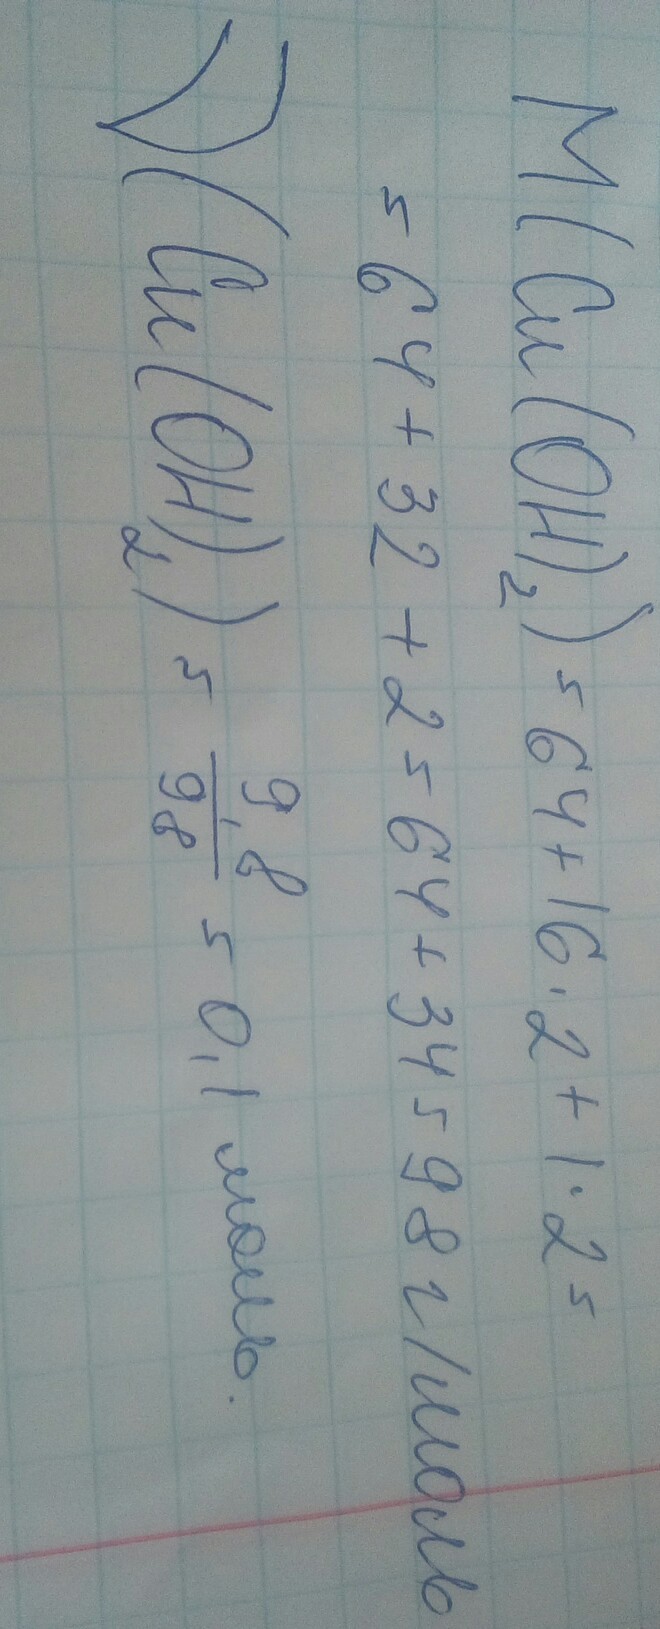 M(Cu(OH)₂) = 64 + 16·2 + 1·2 =
= 64 + 32 + 2 = 64 + 34 = 98 г/моль
ν(Cu(OH)₂) = 9,8/98 = 0,1 моль.